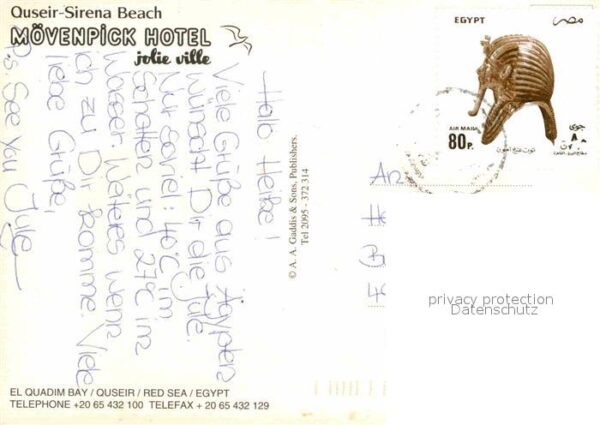 Quseir-Sirena Beach
MÖVENPICK HOTEL
jolie ville
Hallo Heike!
Viele Grüße aus Ägypten
wünscht Dir die Jule.
Nur soviel: 40°C im
Schatten und 27°C im
Wasser. Weiteres wenn
ich zu Dir komme. Viele
liebe Grüße,
Jule
P.S. See you
© A. A. Gaddis & Sons, Publishers.
Tel 2095 - 372 314
EGYPT
مصر
AIR MAIL
80P.
٨٠
توت عنخ آمون
An
privacy protection
Datenschutz
EL QUADIM BAY / QUSEIR / RED SEA / EGYPT
TELEPHONE +20 65 432 100 TELEFAX + 20 65 432 129